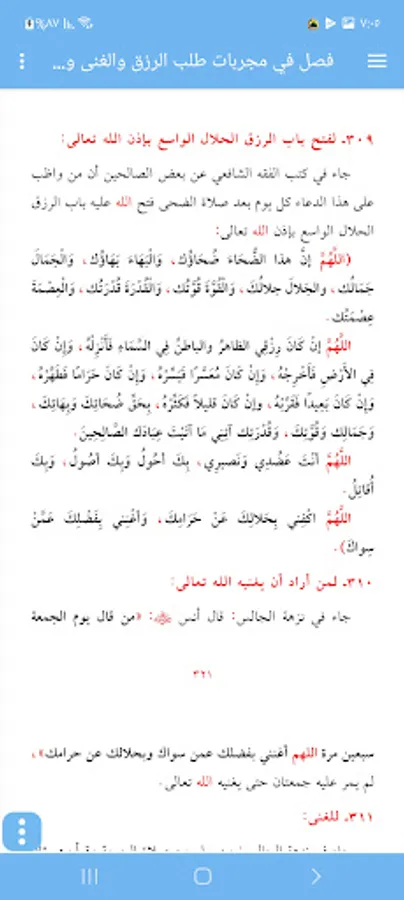 ٧:٠٥ ٨٧%
فصل في مجربات طلب الرزق والغنى و...
٣٠٩ـ لفتح باب الرزق الحلال الواسع بإذن الله تعالى:
جاء في كتب الفقه الشافعي عن بعض الصالحين أن من واظب
على هذا الدعاء كل يوم بعد صلاة الضحى فتح الله عليه باب الرزق
الحلال الواسع بإذن الله تعالى:
(اللَّهُمَّ إنَّ هذا الضَّحَاءَ ضُحَاؤُك، وَالْبَهَاءَ بَهَاؤُك، وَالْجَمَالَ
جَمَالُك، والجَلالَ جلالُكَ، وَالْقُوَّةَ قُوَّتُك، وَالْقُدْرَةَ قُدْرَتُك، وَالْعِصْمَةَ
عِصْمَتُك.
اللَّهُمَّ إنْ كَانَ رِزْقِي الظاهرُ والباطنُ فِي السَّمَاءِ فَأَنزِلْهُ، وَإِنْ كَانَ
فِي الأَرْضِ فَأَخرِجْهُ، وَإِنْ كَانَ مُعَسَّرًا فَيَسِّرْهُ، وَإِنْ كَانَ حَرَامًا فَطَهِّرْهُ،
وَإِنْ كَانَ بَعِيدًا فَقَرِّبْهُ، وإنْ كَانَ قليلاً فَكَثِّرْهُ، بِحَقِّ ضُحَائِكَ وَبِهَائِكَ،
وَجَمَالِكَ وَقُوَّتِكَ، وَقُدْرَتِك آتِنِي مَا آتَيْتَ عِبَادَك الصَّالِحِينَ.
اللَّهُمَّ أنْتَ عَضُدِي وَنَصِيرِي، بِكَ أَحُولُ وَبِكَ أَصُولُ، وَبِكَ
أُقَاتِلُ.
اللَّهُمَّ اكْفِنِي بِحَلَالِكَ عَنْ حَرَامِكَ، وَأَغْنِنِي بِفَضْلِكَ عَمَّنْ
سِواكَ).
٣١٠ـ لمن أراد أن يغنيه الله تعالى:
جاء في نزهة المجالس: قال أنس ﵁: «من قال يوم الجمعة
٣٢١
سبعين مرة اللهم أغنني بفضلك عمن سواك وبحلالك عن حرامك»،
لم يمر عليه جمعتان حتى يغنيه الله تعالى.
٣١١ـ للغنى: